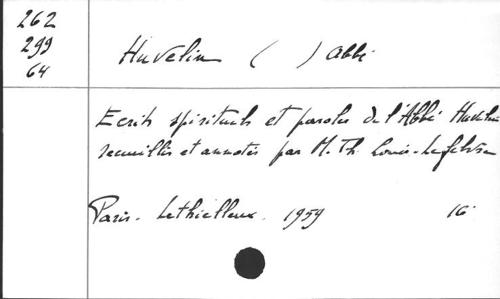 262
299
64
Huvelin ( ) abbé
Ecrits spirituels et paroles de l'Abbé Huvelin
recueillis et annotés par M. Th. Louis-Lefebvre
Paris. Lethielleux. 1959 16